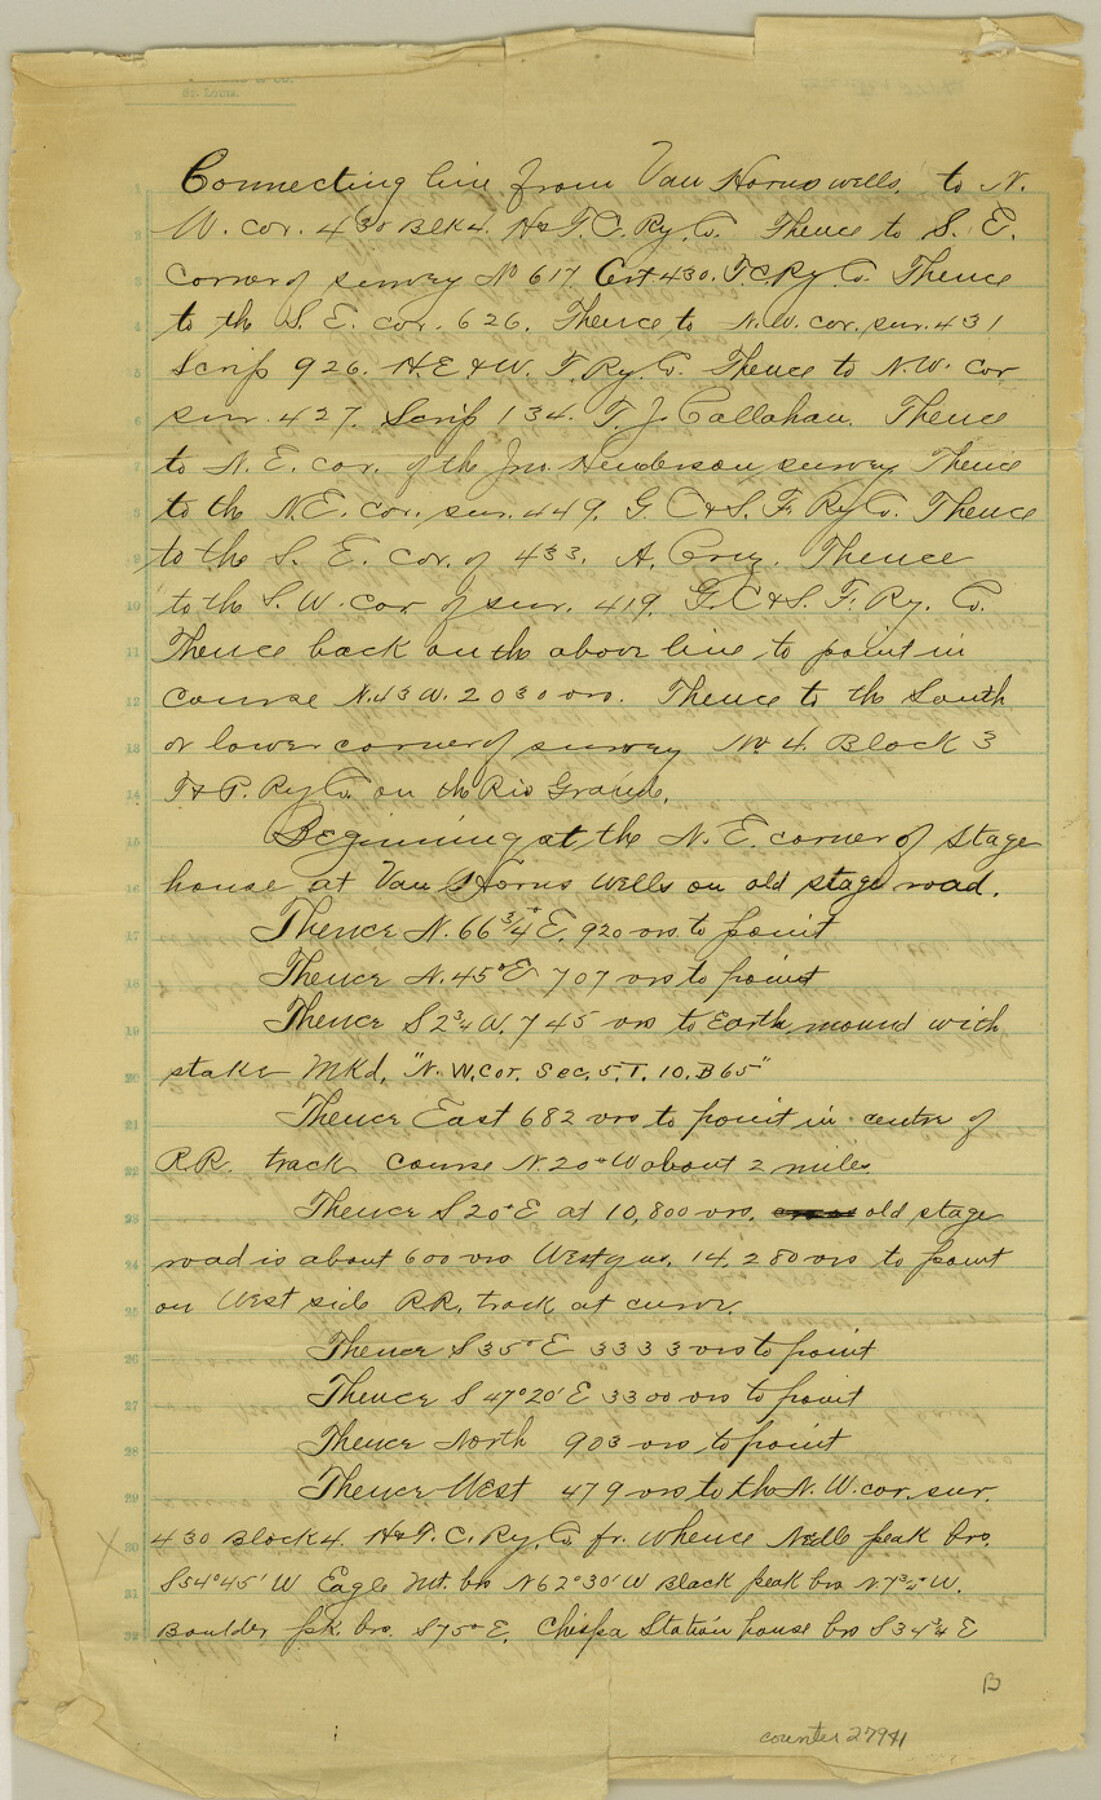 St. Louis.
Connecting line from Van Horns wells, to N.
W. cor. 430 Blk 4. H&T.C. Ry. Co. Thence to S. E.
corner of survey No 617 Cert 430. T.C. Ry. Co. Thence
to the S. E. cor. 626. Thence to N.W. cor. sur. 431
Scrip 926. H.E & W. T. Ry. Co. Thence to N.W. cor
sur. 427. Scrip 134. T. J. Callahan. Thence
to N. E. cor. of the Jno. Henderson survey Thence
to the N.E. cor. sur. 449. G. C & S. F. Ry Co. Thence
to the S. E. cor. of 433, A. Cruz. Thence
to the S. W. cor of sur. 419. G. C & S. F. Ry. Co.
Thence back on the above line to point in
course N. 43 W. 2030 vrs. Thence to the South
or lower corner of survey No 4. Block 3
T & P. Ry Co. on the Rio Grande.
Beginning at the N. E. corner of stage
house at Van Horns Wells on old stage road.
Thence N. 66 3/4° E. 920 vrs to point
Thence N. 45° E 707 vrs to point
Thence S 2 3/4 W. 745 vrs to Earth mound with
stake Mkd, "N. W. Cor. Sec. 5. T. 10. B 65"
Thence East 682 vrs to point in centre of
R.R. track course N. 20° W about 2 miles.
Thence S 20° E at 10,800 vrs. old stage
road is about 600 vrs West of us. 14,280 vrs to point
on West side R.R. track at curve.
Thence S 35° E 3333 vrs to point
Thence S 47° 20' E 3300 vrs to point
Thence North 903 vrs to point
Thence West 479 vrs to the N. W. cor. sur.
430 Block 4. H&T. C. Ry. Co. fr. whence Nedle peak brs.
S 54° 45' W Eagle Mt. brs N 62° 30' W Black peak brs N. 7 3/4° W.
Boulder pk. brs. S 75° E. Chispa Station house brs S 34 3/4 E
B
counter 27941